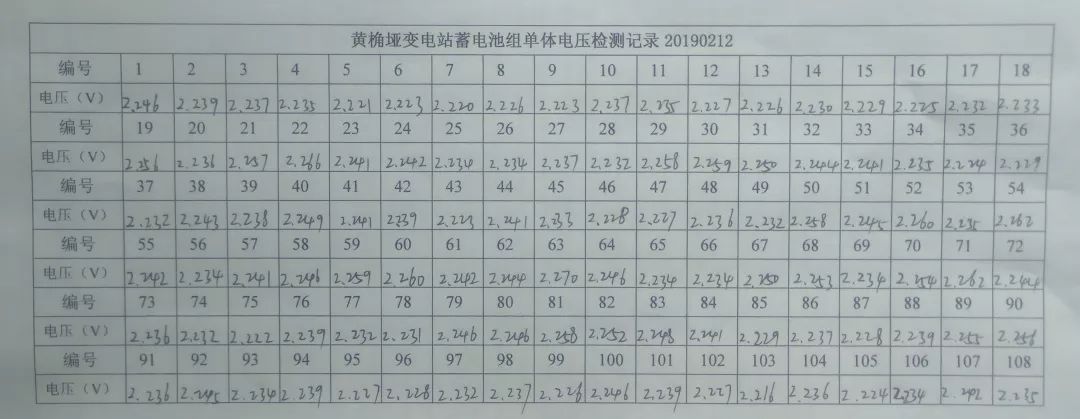 黄桷垭变电站蓄电池组单体电压检测记录 20190212
编号 1 2 3 4 5 6 7 8 9 10 11 12 13 14 15 16 17 18
电压（V） 2.246 2.239 2.237 2.235 2.221 2.223 2.220 2.226 2.223 2.237 2.235 2.227 2.226 2.230 2.229 2.225 2.232 2.233
编号 19 20 21 22 23 24 25 26 27 28 29 30 31 32 33 34 35 36
电压（V） 2.256 2.236 2.257 2.266 2.241 2.242 2.234 2.234 2.237 2.232 2.258 2.259 2.250 2.244 2.241 2.235 2.224 2.229
编号 37 38 39 40 41 42 43 44 45 46 47 48 49 50 51 52 53 54
电压（V） 2.232 2.243 2.238 2.249 2.241 2239 2.223 2.241 2.233 2.228 2.227 2.236 2.232 2.258 2.245 2.260 2.235 2.262
编号 55 56 57 58 59 60 61 62 63 64 65 66 67 68 69 70 71 72
电压（V） 2.242 2.234 2.241 2.246 2.259 2.260 2.242 2.244 2.270 2.246 2.234 2.234 2.250 2.253 2.234 2.254 2.262
编号 73 74 75 76 77 78 79 80 81 82 83 84 85 86 87 88 89 90
电压（V） 2.236 2.232 2.222 2.239 2.232 2.231 2.246 2.246 2.258 2.252 2.248 2.241 2.229 2.237 2.228 2.239 2.255 2.256
编号 91 92 93 94 95 96 97 98 99 100 101 102 103 104 105 106 107 108
电压（V） 2.236 2.245 2.234 2.239 2.227 2.228 2.232 2.237 2.226 2.246 2.239 2.227 2.216 2.236 2.224 2.234 2.242 2.235